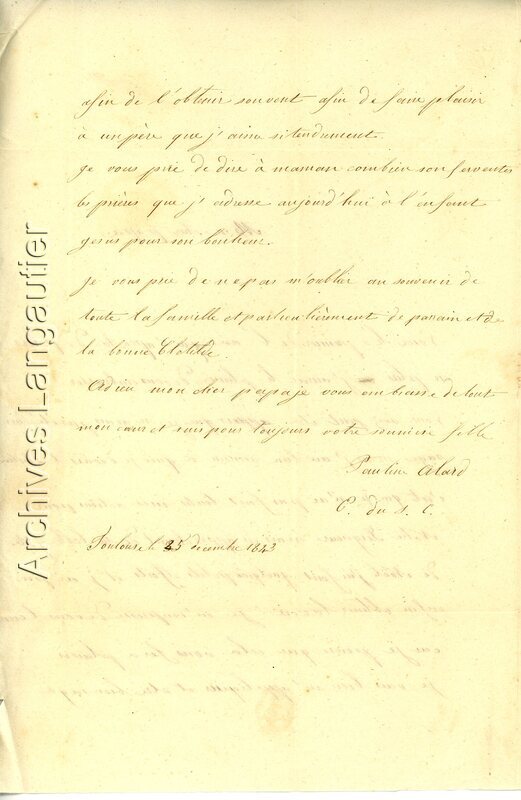 afin de l'obtenir souvent afin de faire plaisir
à un père que j'aime si tendrement.
Je vous prie de dire à maman combien son ferventes
les prières que j'adresse aujourd'hui à l'enfant
jesus pour son bonheur.
Je vous prie de ne pas m'oublier au souvenir de
toute la famille et particulièrement de parrain et de
la bonne Clotilde.
Adieu mon cher papa je vous embrasse de tout
mon cœur et suis pour toujours votre soumise fille
Pauline Alard
E. du s. C.
Toulouse le 25 decembre 1843
Archives Langautier